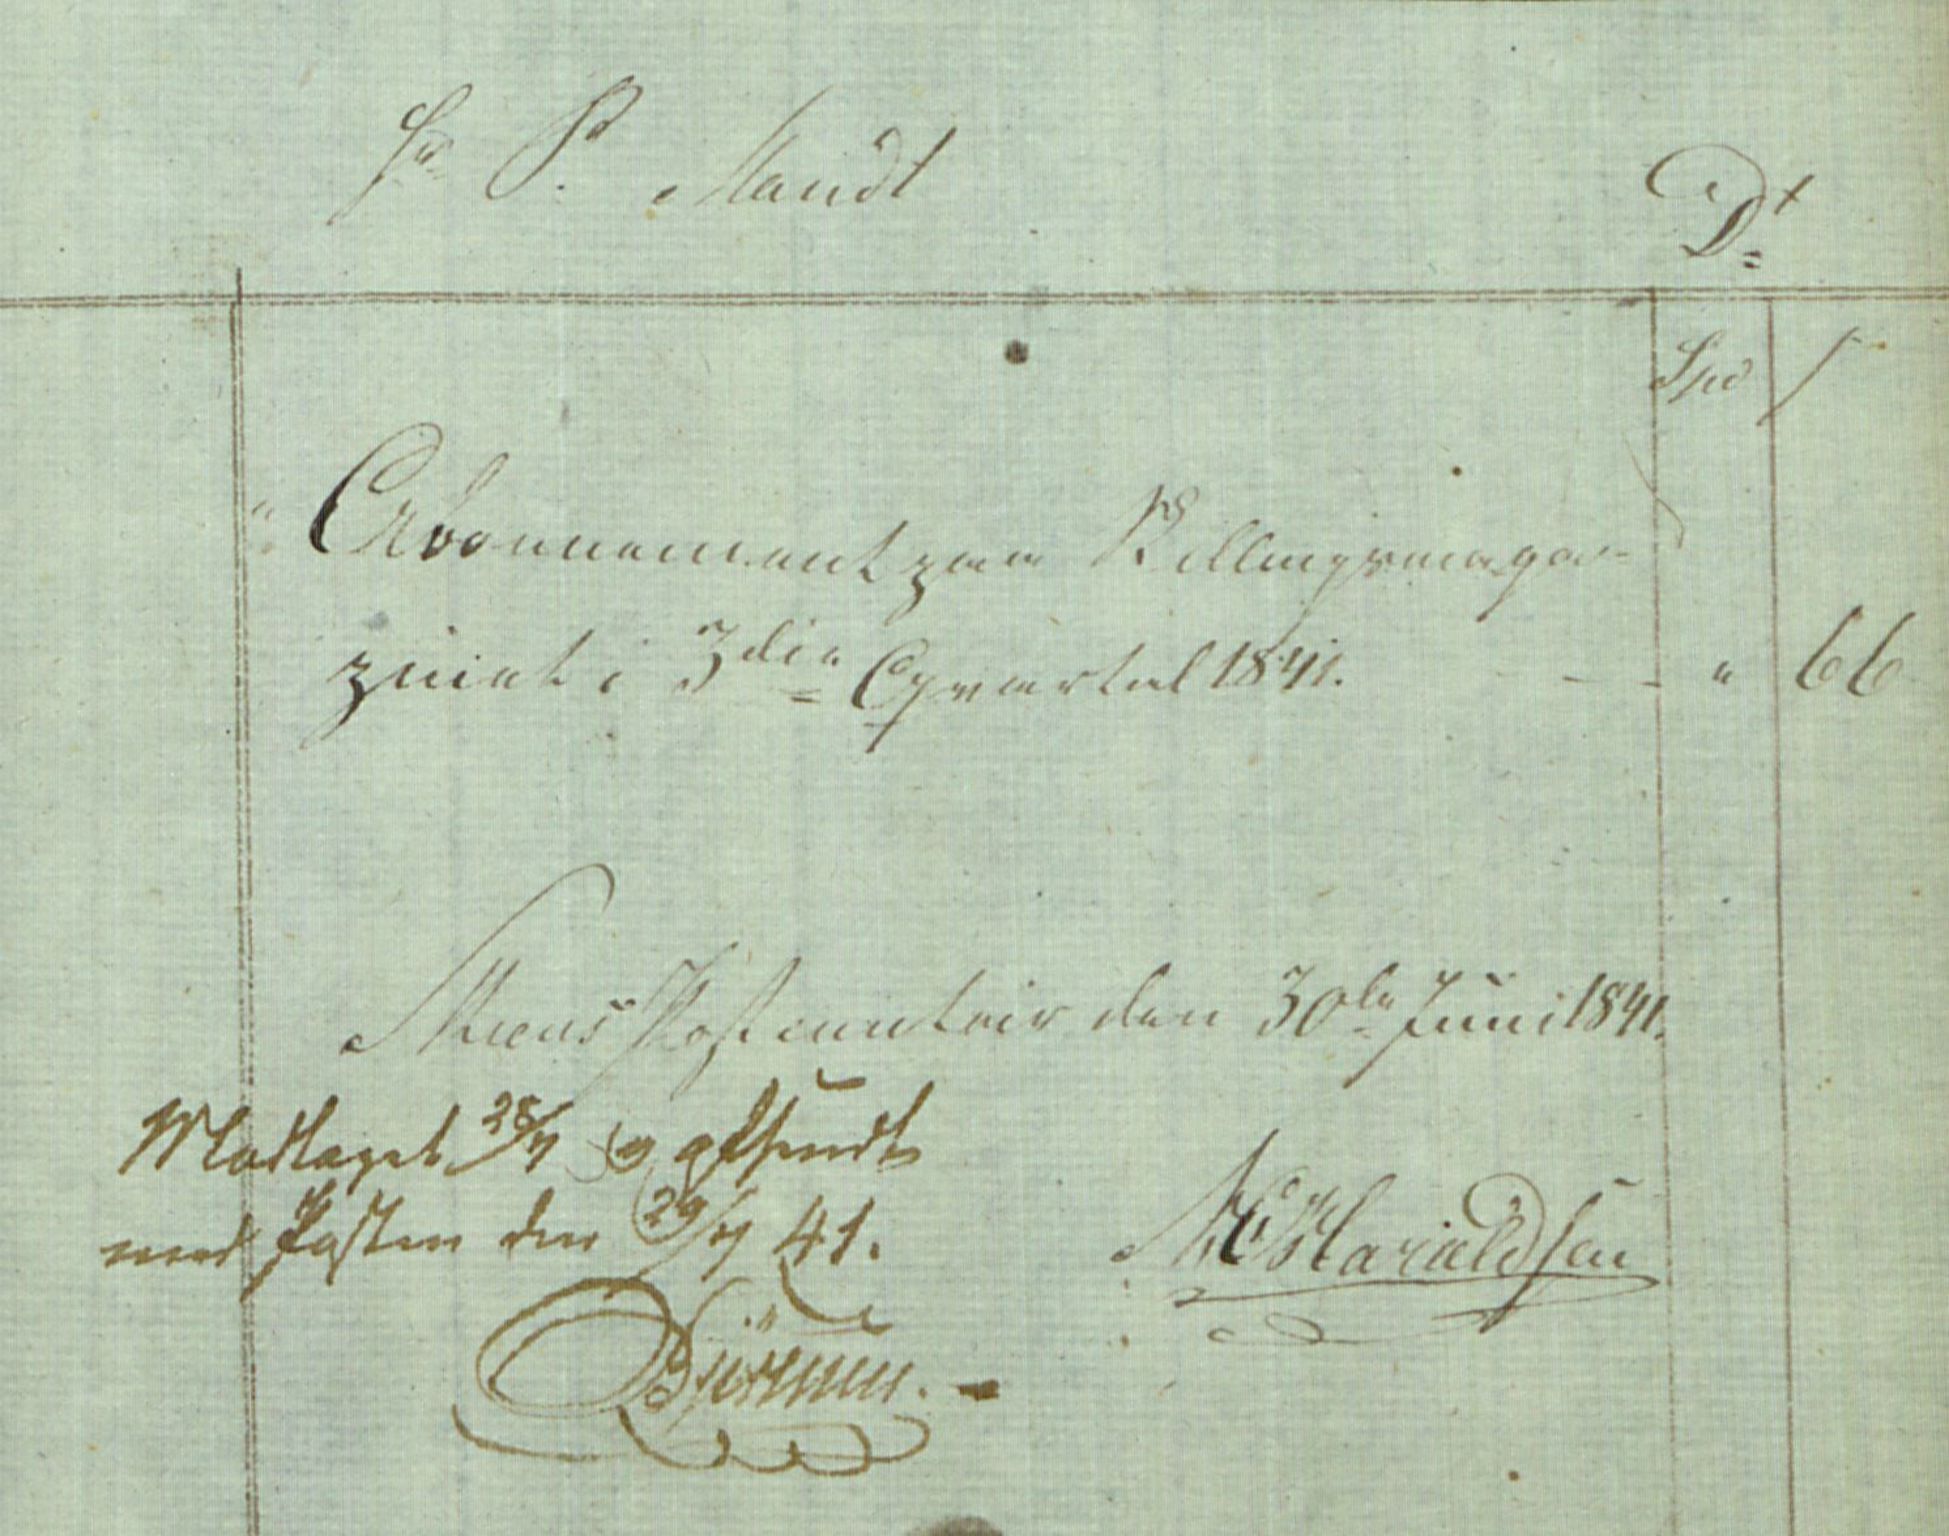 Hr P. Mandt Dt
Spd ſ
" Abonnement paa Skillingsmaga-
zinet i 3die Qvartal 1841. - - " 66
Skiens Postcontoir den 30te Juni 1841.
Modtaget 28/7 og afsendt
med Posten den 29/7 41.
Haraldsen